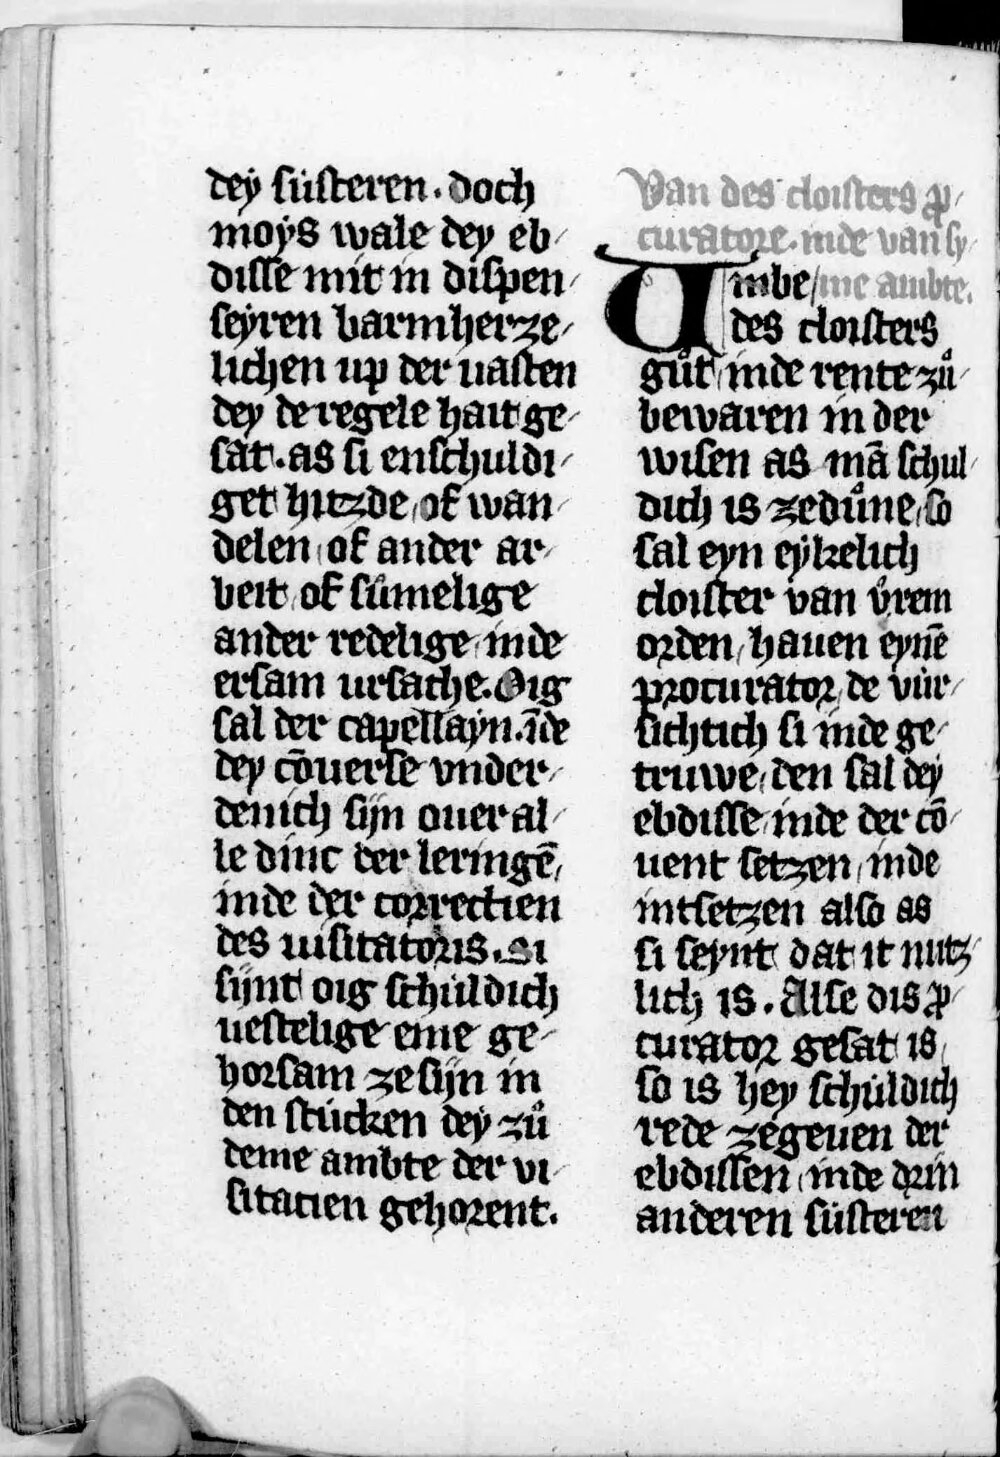 deÿ süsteren. doch
moÿs wale dey eb/
disse mit in dispen/
seÿren barmherze/
lichen up der uasten
dey de regele hait ge/
sat. as si enschuldi/
get hitzde, of wan/
delen, of ander ar/
beit, of sůmelige
ander redelige, inde
ersam ursache. Oig
sal der capellaÿn. īde
dey cōuerse vnder/
denich sijn ouer al/
le dinc der leringē,
inde der correctien
des uisitatoris. Si
sijnt oig schüldich
uestelige eme ge/
horsam ze sijn in
den stücken deÿ zů
deme ambte der vi/
sitatien gehorent.
Van des cloisters ꝓ/
curatore. inde van sy/
me ambte.
Umbe
des cloisters
gůt, inde rente zů/
bewaren in der
wisen as mā schul/
dich is ze důne, so
sal eyn eÿkelich
cloister van ůrem
orden, hauen eynē
procurator, de vür/
sichtich si inde ge/
truwe, den sal deÿ
ebdisse, inde der cō/
uent setzen, inde
intsetzen also as
si seynt dat it nutz/
lich is. Alse dis ꝓ/
curator gesat is,
so is hey schüldich
rede ze geuen der
ebdissen, inde drin
anderen süsteren